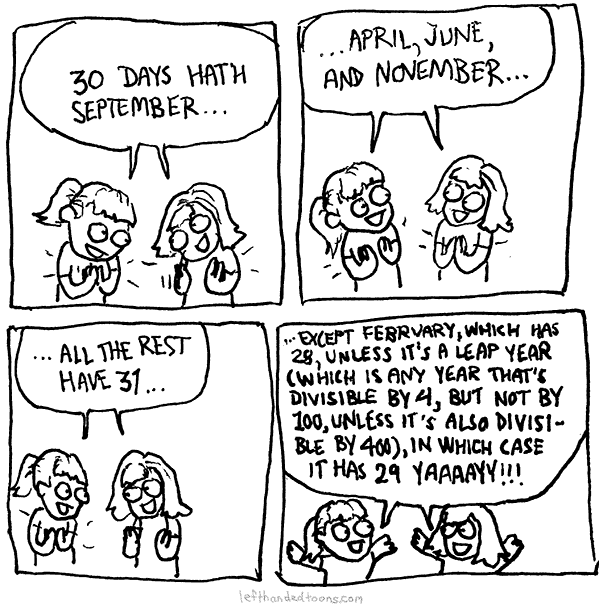 30 DAYS HATH
SEPTEMBER...
...APRIL, JUNE,
AND NOVEMBER...
...ALL THE REST
HAVE 31...
...EXCEPT FEBRUARY, WHICH HAS
28, UNLESS IT'S A LEAP YEAR
(WHICH IS ANY YEAR THAT'S
DIVISIBLE BY 4, BUT NOT BY
100, UNLESS IT'S ALSO DIVISI-
BLE BY 400), IN WHICH CASE
IT HAS 29 YAAAAYY!!!
lefthandedtoons.com